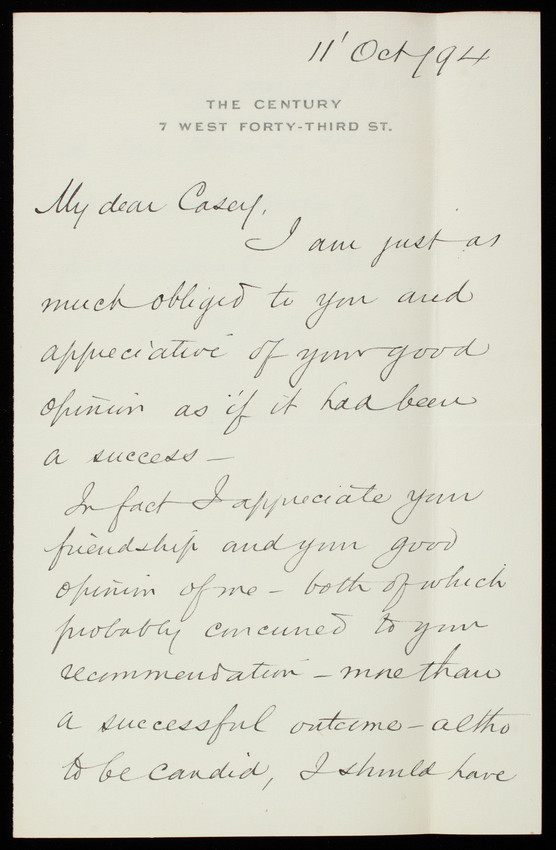 11' Oct /94
THE CENTURY
7 WEST FORTY-THIRD ST.
My dear Casey,
I am just as
much obliged to you and
appreciative of your good
opinion as if it had been
a success —
In fact I appreciate your
friendship and your good
opinion of me — both of which
probably concurred to your
recommendation — more than
a successful outcome — altho
to be candid, I should have